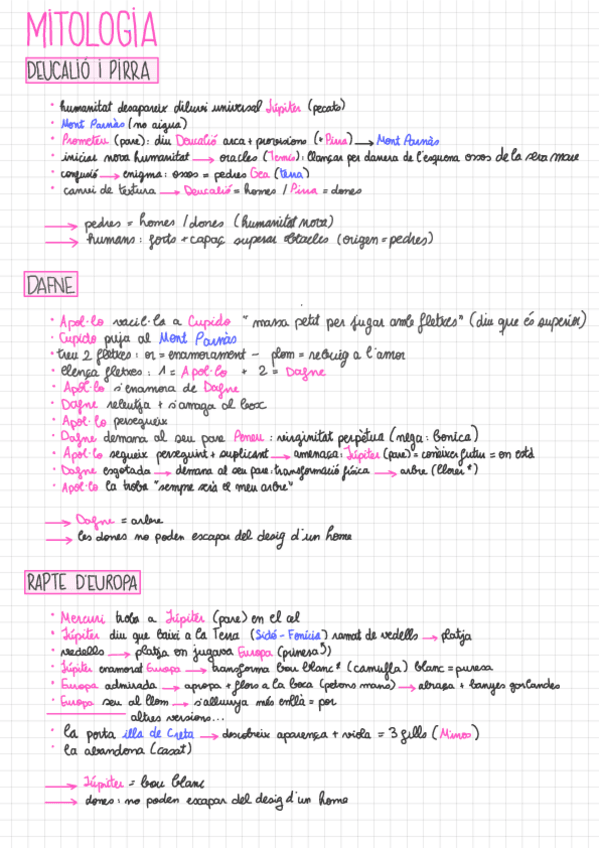 MITOLOGIA
DEUCALIÓ I PIRRA
· humanitat desapareix diluvi universal Júpiter (pecats)
· Mont Parnàs (no aigua)
· Prometeu (pare): diu Deucalió arca + provisions (+ Pirra) → Mont Parnàs
· iniciar nova humanitat → oracles (Temis): llançar per darrera de l'esquena ossos de la seva mare
· confusió → enigma: ossos = pedres Gea (terra)
· canvi de textura → Deucalió = homes / Pirra = dones
→ pedres = homes / dones (humanitat nova)
→ humans: forts + capaç superar obstacles (origen = pedres)
DAFNE
· Apol·lo vacil·la a Cupido "massa petit per jugar amb fletxes" (diu que és superior)
· Cupido puja al Mont Parnàs
· treu 2 fletxes: or = enamorament - plom = rebuig a l'amor
· llença fletxes: 1 = Apol·lo + 2 = Dafne
· Apol·lo s'enamora de Dafne
· Dafne rebutja + s'amaga al bosc
· Apol·lo persegueix
· Dafne demana al seu pare Peneu: virginitat perpètua (nega: bonica)
· Apol·lo segueix perseguint + suplicant → amenaça: Júpiter (pare) = conèixer futur = on està
· Dafne esgotada → demana al seu pare: transformació física → arbre (llorer*)
· Apol·lo la troba "sempre seràs el meu arbre"
→ Dafne = arbre
→ les dones no poden escapar del desig d'un home
RAPTE D'EUROPA
· Mercuri troba a Júpiter (pare) en el cel
· Júpiter diu que baixi a la Terra (Sidó - Fenícia) ramat de vedells → platja
· vedells → platja on jugava Europa (princesa)
· Júpiter enamorat Europa → transforma bou blanc* (camufla) blanc = puresa
· Europa admirada → apropa + flors a la boca (petons mans) → abraça + banyes garlandes
· Europa seu al llom → s'allunya més enllà = por
altres versions...
· la porta illa de Creta → descobreix aparença + viola = 3 fills (Minos)
· la abandona (casat)
→ Júpiter = bou blanc
→ dones: no poden escapar del desig d'un home